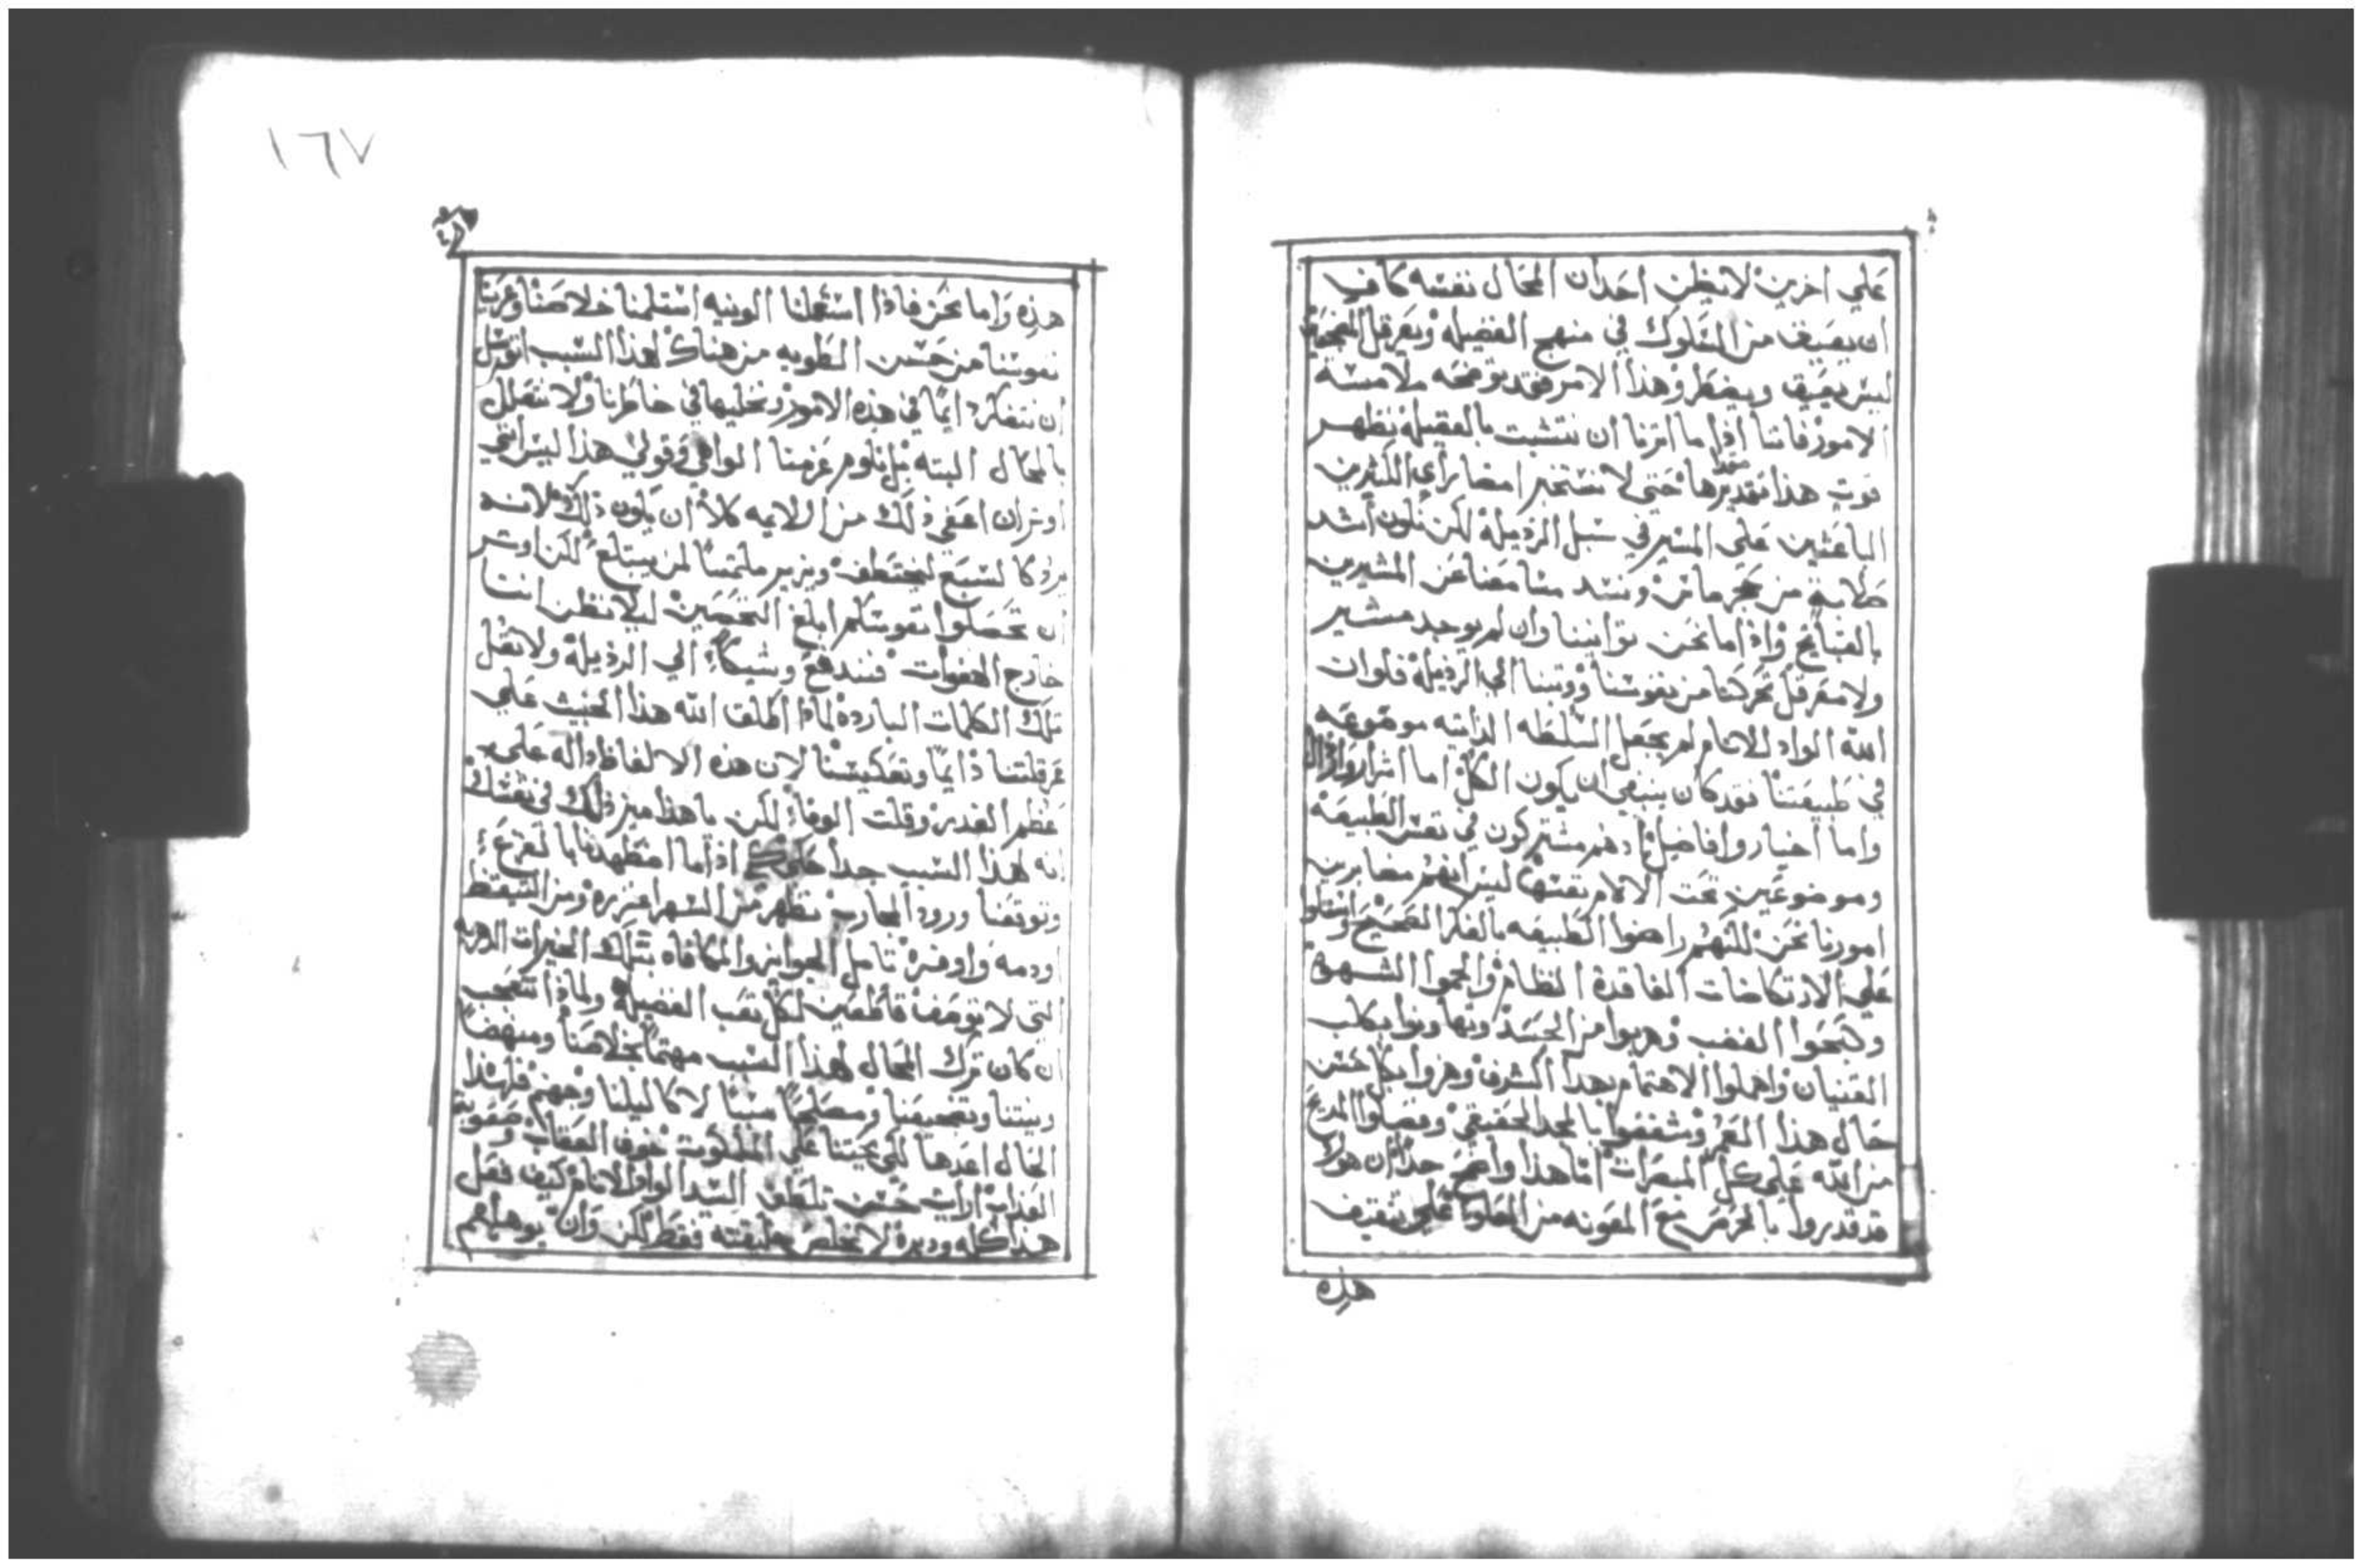 علي اخرين لا يظن احد ان المحال نفسه كاف
ان يصدف من السلوك في منهج الفضيله ويعرقل
ليس يعيق ويضطر وهذا الامر فقد توضحه ملامسة
الامور فاننا اذا ما اثرنا ان نتشبت بالفضيله تظهر
قوت هذا مقديرها حتي لا نستخير امضا راي الكثيرين
الباعثين علي المسير في سبل الرذيلة لكن نكون اشد
صلابة من حجر ماس ونسد مسامعنا عن المشيرين
بالقبايح واذا ما نحن توانينا وان لم يوجد مشير
ولا معرقل تحركنا من نفوسنا ووثبنا الي الرذيلة فلو ان
الله الواد الانام لم يجعل السلطه الذاتيه موضوعه
في طبيعتنا فقد كان ينبغي ان يكون الكل اما اشرار
واما اخيار وافاضل اذ هم مشتركون في نفس الطبيعة
وموضوعين تحت الالام نفسها ليس انهم مضابرين
امورنا نحن لكنهم راضوا الطبيعه بالفكر الصحيح
علي الارتكاضات الفاقدة النظام والجموا الشهوة
وكبحوا الغضب وهربوا من الحسد وتهاونوا بكلب
القنيان واهملوا الاهتمام بهذا الشرف وهزوا بكل حسن
حال هذا العمر وشغفوا بالمجد الحقيقي وفضلوا المديح
من الله علي كل المبصرات اما هذا واضح جدا ان هولا
قد قدروا بالحرص مع المعونه من العلو علي تثقيف
هذه
١٦٧
هذه واما نحن فاذا استعملنا الونيه استلمنا خلاصنا وعرينا
نفوسنا من حسن الطويه من هناك لهذا السبب اتوسل
ان نتفكر دايما في هذه الامور ونخليها في خاطرنا ولا نتعلل
بالمحال البته بل نلوم عزمنا الواهي وقولي هذا ليس انني
اوثر ان اعفي ذلك من الايمه كلا ان يكون ذلك لانه
يزار كالسبع ليختطف ويزير ملتمسا لمن يبتلع لكن اوثر
ان تحصلوا نفوسكم ابلغ التحصين ليلا تظن انت
خارج الهفوات فتندفع وشيكا الي الرذيلة ولا تقل
تلك الكلمات الباردة لماذا اطلق الله هذا الخبيث علي
عرقلتنا دايما وتعكيسنا لان هذه الالفاظ داله علي
عظم الغدر وقلت الوفا لكن يا هذا ميز ذلك في نفسك
انه لهذا السبب جدا اذا ما اضطهدنا بالفزع
وتوقعنا ورود المحارب نظهر من السهر اغزره ومن التيقظ
اودمه واوفرة تامل الجوايز والمكافاه بتلك الخيرات الدهريه
التي لا توصف قاطعين لكل تعب الفضيلة ولماذا تتعجب
ان كان ترك المحال لهذا السبب مهتما بخلاصنا ومنهضا
ونيتنا وتضجيعنا ومصلحا سببا لاكاليلنا وجهنم فلهذا
الحال اعدها لكي يحثنا علي الملكوت خوف العقاب وصعوبة
العذاب ارايت حسن تلطف السيد الواد الانام كيف فعل
هذا كله ودبره لا ليخلص خليقته فقط لكن وان يوهلهم